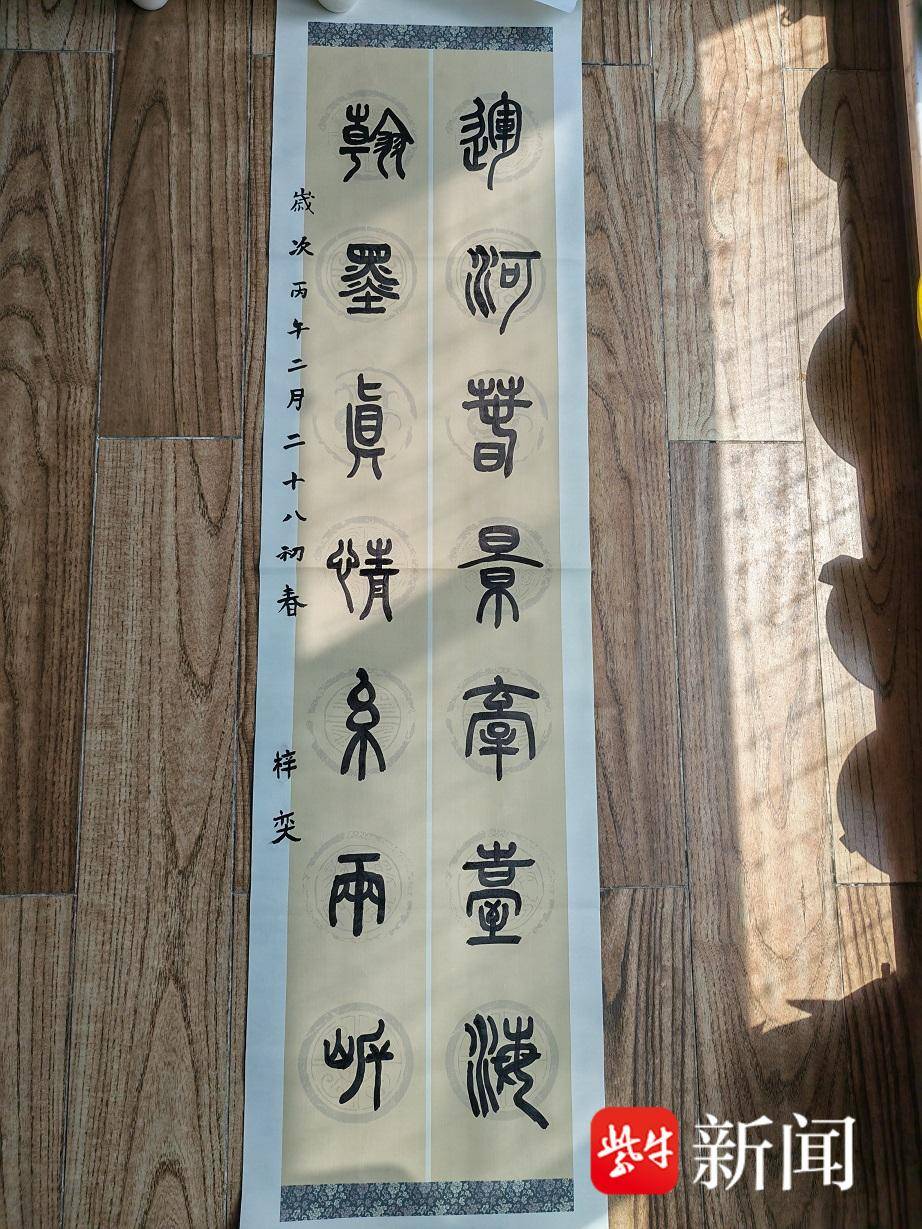 運河春景牽臺海
翰墨眞情系兩岸
歲次丙午二月二十八初春 梓奕
紫牛新闻